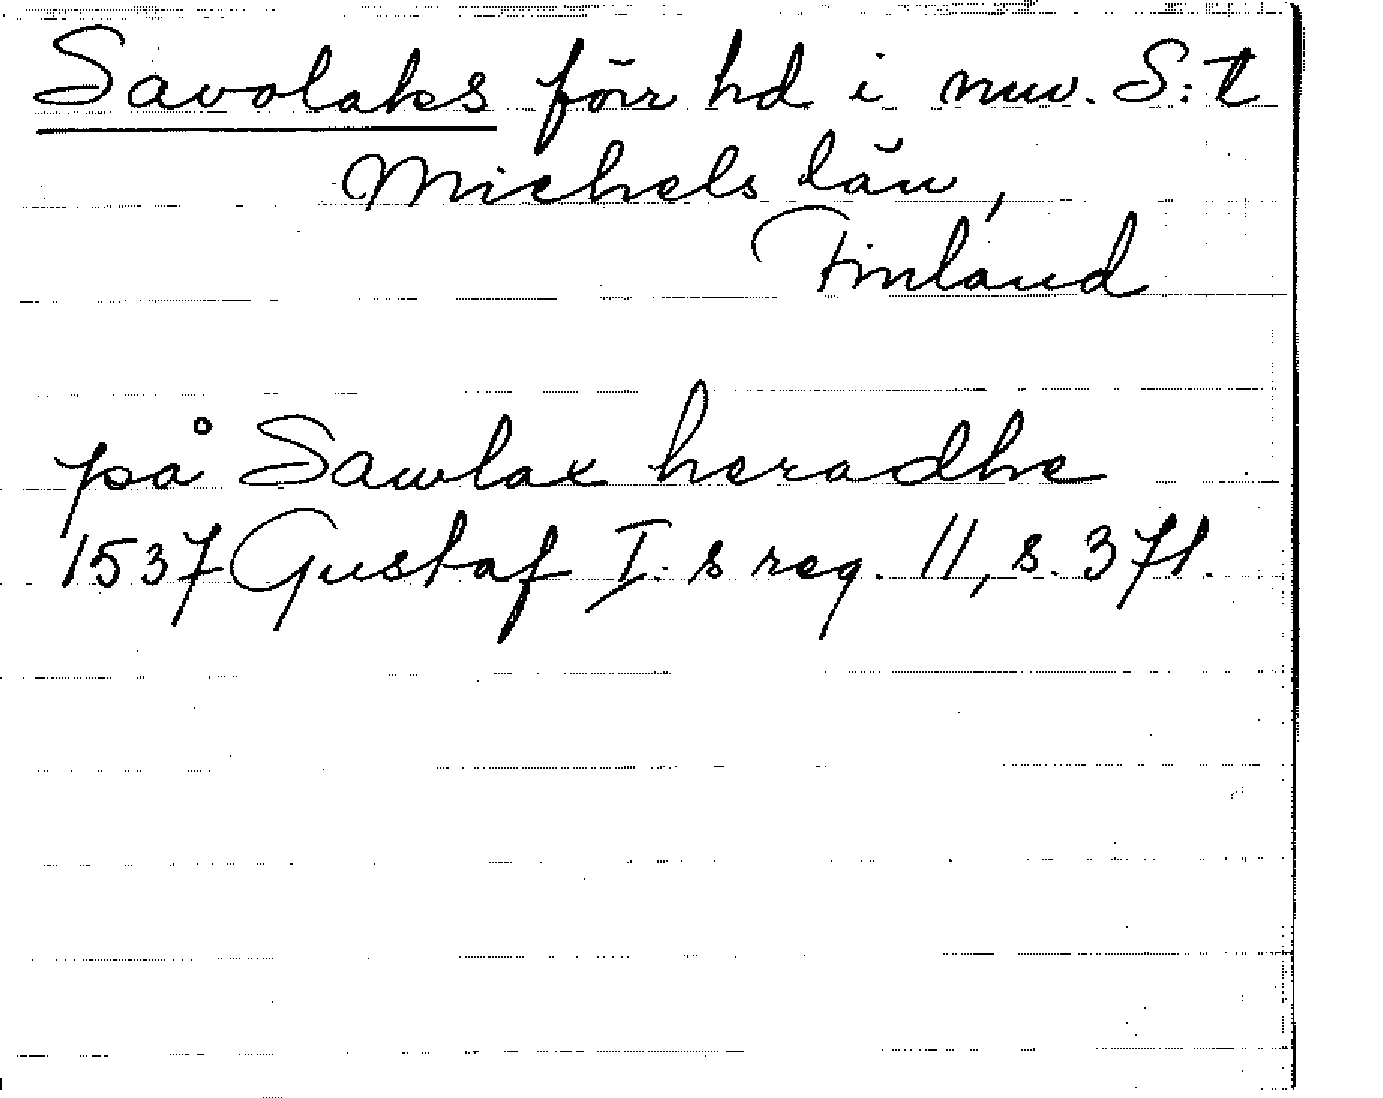 Savolaks förr hd i nuv. S:t
Michels län,
Finland
på Sawlax heradhe
1537 Gustaf I:s reg. 11, s. 371.